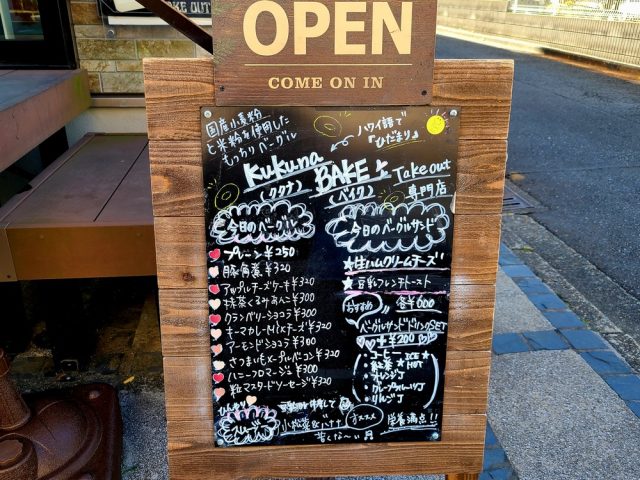 KE OUT
OPEN
COME ON IN
国産小麦粉
と米粉を使用した
もっちりベーグル
ハワイ語で
『ひだまり』
Kukuna
BAKE
Takeout
専門店
(ククナ)
(ベイク)
今日のベーグル
プレーン ¥250
¥320
アップルチーズケーキ ¥320
抹茶くるみあんこ ¥300
クランベリーショコラ ¥300
キーマカレーMixチーズ ¥320
アーモンドショコラ ¥300
さつまいもメープルベーコン ¥320
ハニーフロマージュ ¥300
粒マスタードソーセージ ¥320
今日のベーグルサンド
★生ハムクリームチーズ
★豆乳フレンチトースト
おすすめ
各¥600
ベーグルサンドドリンクSET
+¥200
・コーヒー
・紅茶
ICE
HOT
・オレンジJ
・グレープフルーツJ
・リンゴJ
ひんやり
小松菜&バナナ
オススメ
栄養満点!!